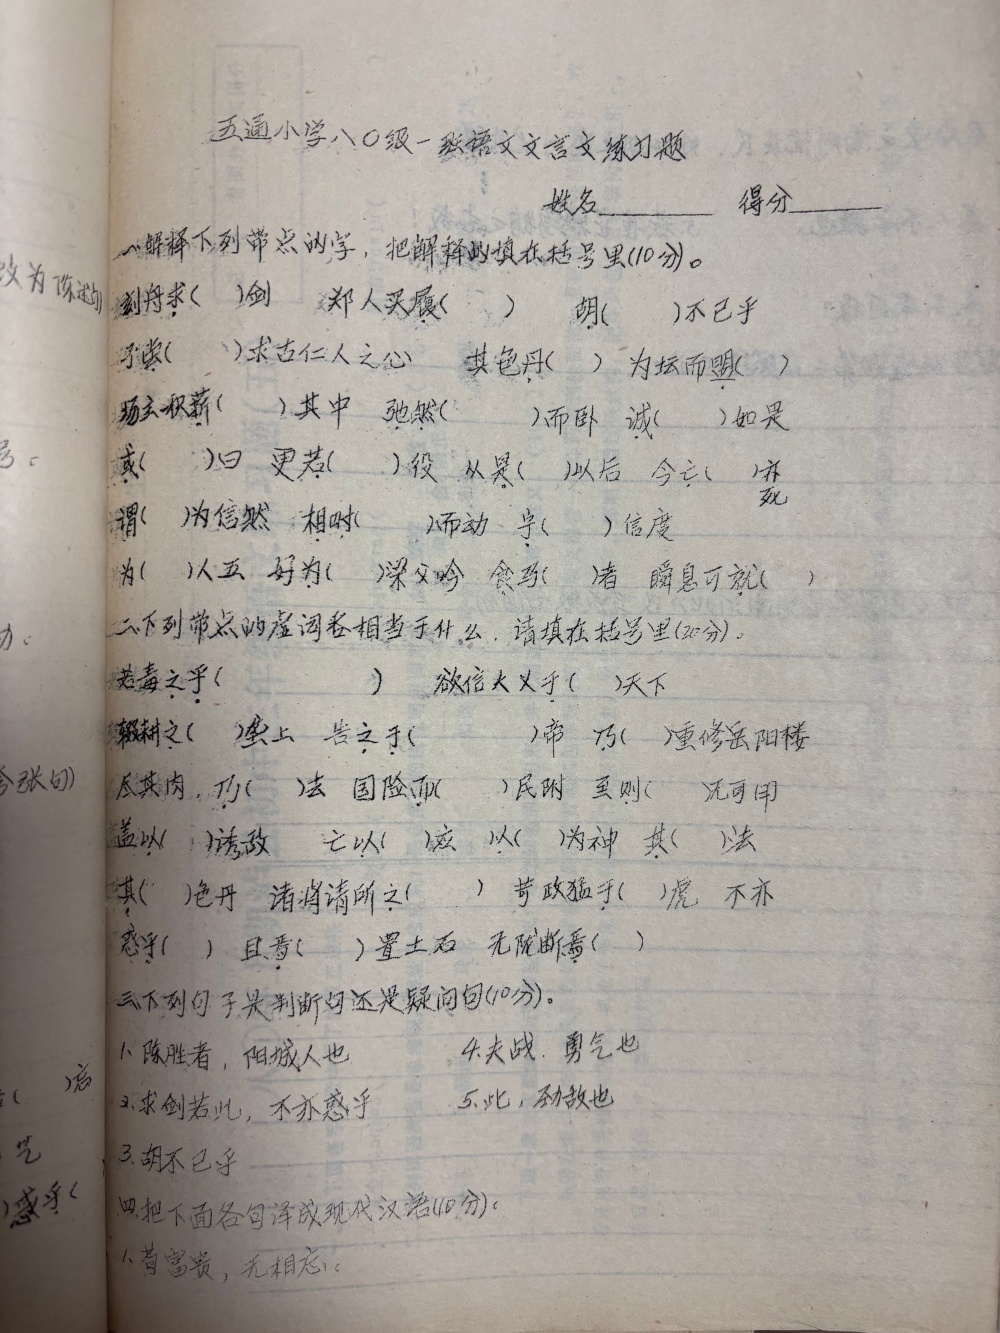 五通小学八〇级一班语文文言文练习题
姓名______ 得分______
一、解释下列带点的字，把解释的填在括号里(10分)。
刻舟求( )剑 郑人买履( ) 胡( )不已乎
予尝( )求古仁人之心 其色丹( ) 为坛而盟( )
场主积薪( )其中 弛然( )而卧 诚( )如是
或( )曰 更若( )役 从是( )以后 今亡( )亦死
谓( )为信然 相时( )而动 宁( )信度
为( )人五 好为( )梁父吟 食马( )者 瞬息可就( )
二、下列带点的虚词各相当于什么，请填在括号里(20分)。
若毒之乎( ) 欲信大义于( )天下
辍耕之( )垄上 告之于( )帝 乃( )重修岳阳楼
尽其肉，乃( )去 国险而( )民附 至则( )无可用
盖以( )诱敌 亡以( )应 以( )为神 其( )法
其( )色丹 诸将请所之( ) 苛政猛于( )虎 不亦
惑乎( ) 且焉( )置土石 无陇断焉( )
三、下列句子是判断句还是疑问句(10分)。
1、陈胜者，阳城人也 4、夫战，勇气也
2、求剑若此，不亦惑乎 5、此，劲敌也
3、胡不已乎
四、把下面各句译成现代汉语(10分)。
1、苟富贵，无相忘。
改为陈述句)
号。
力。
夸张句)
( )忘
)惑乎(